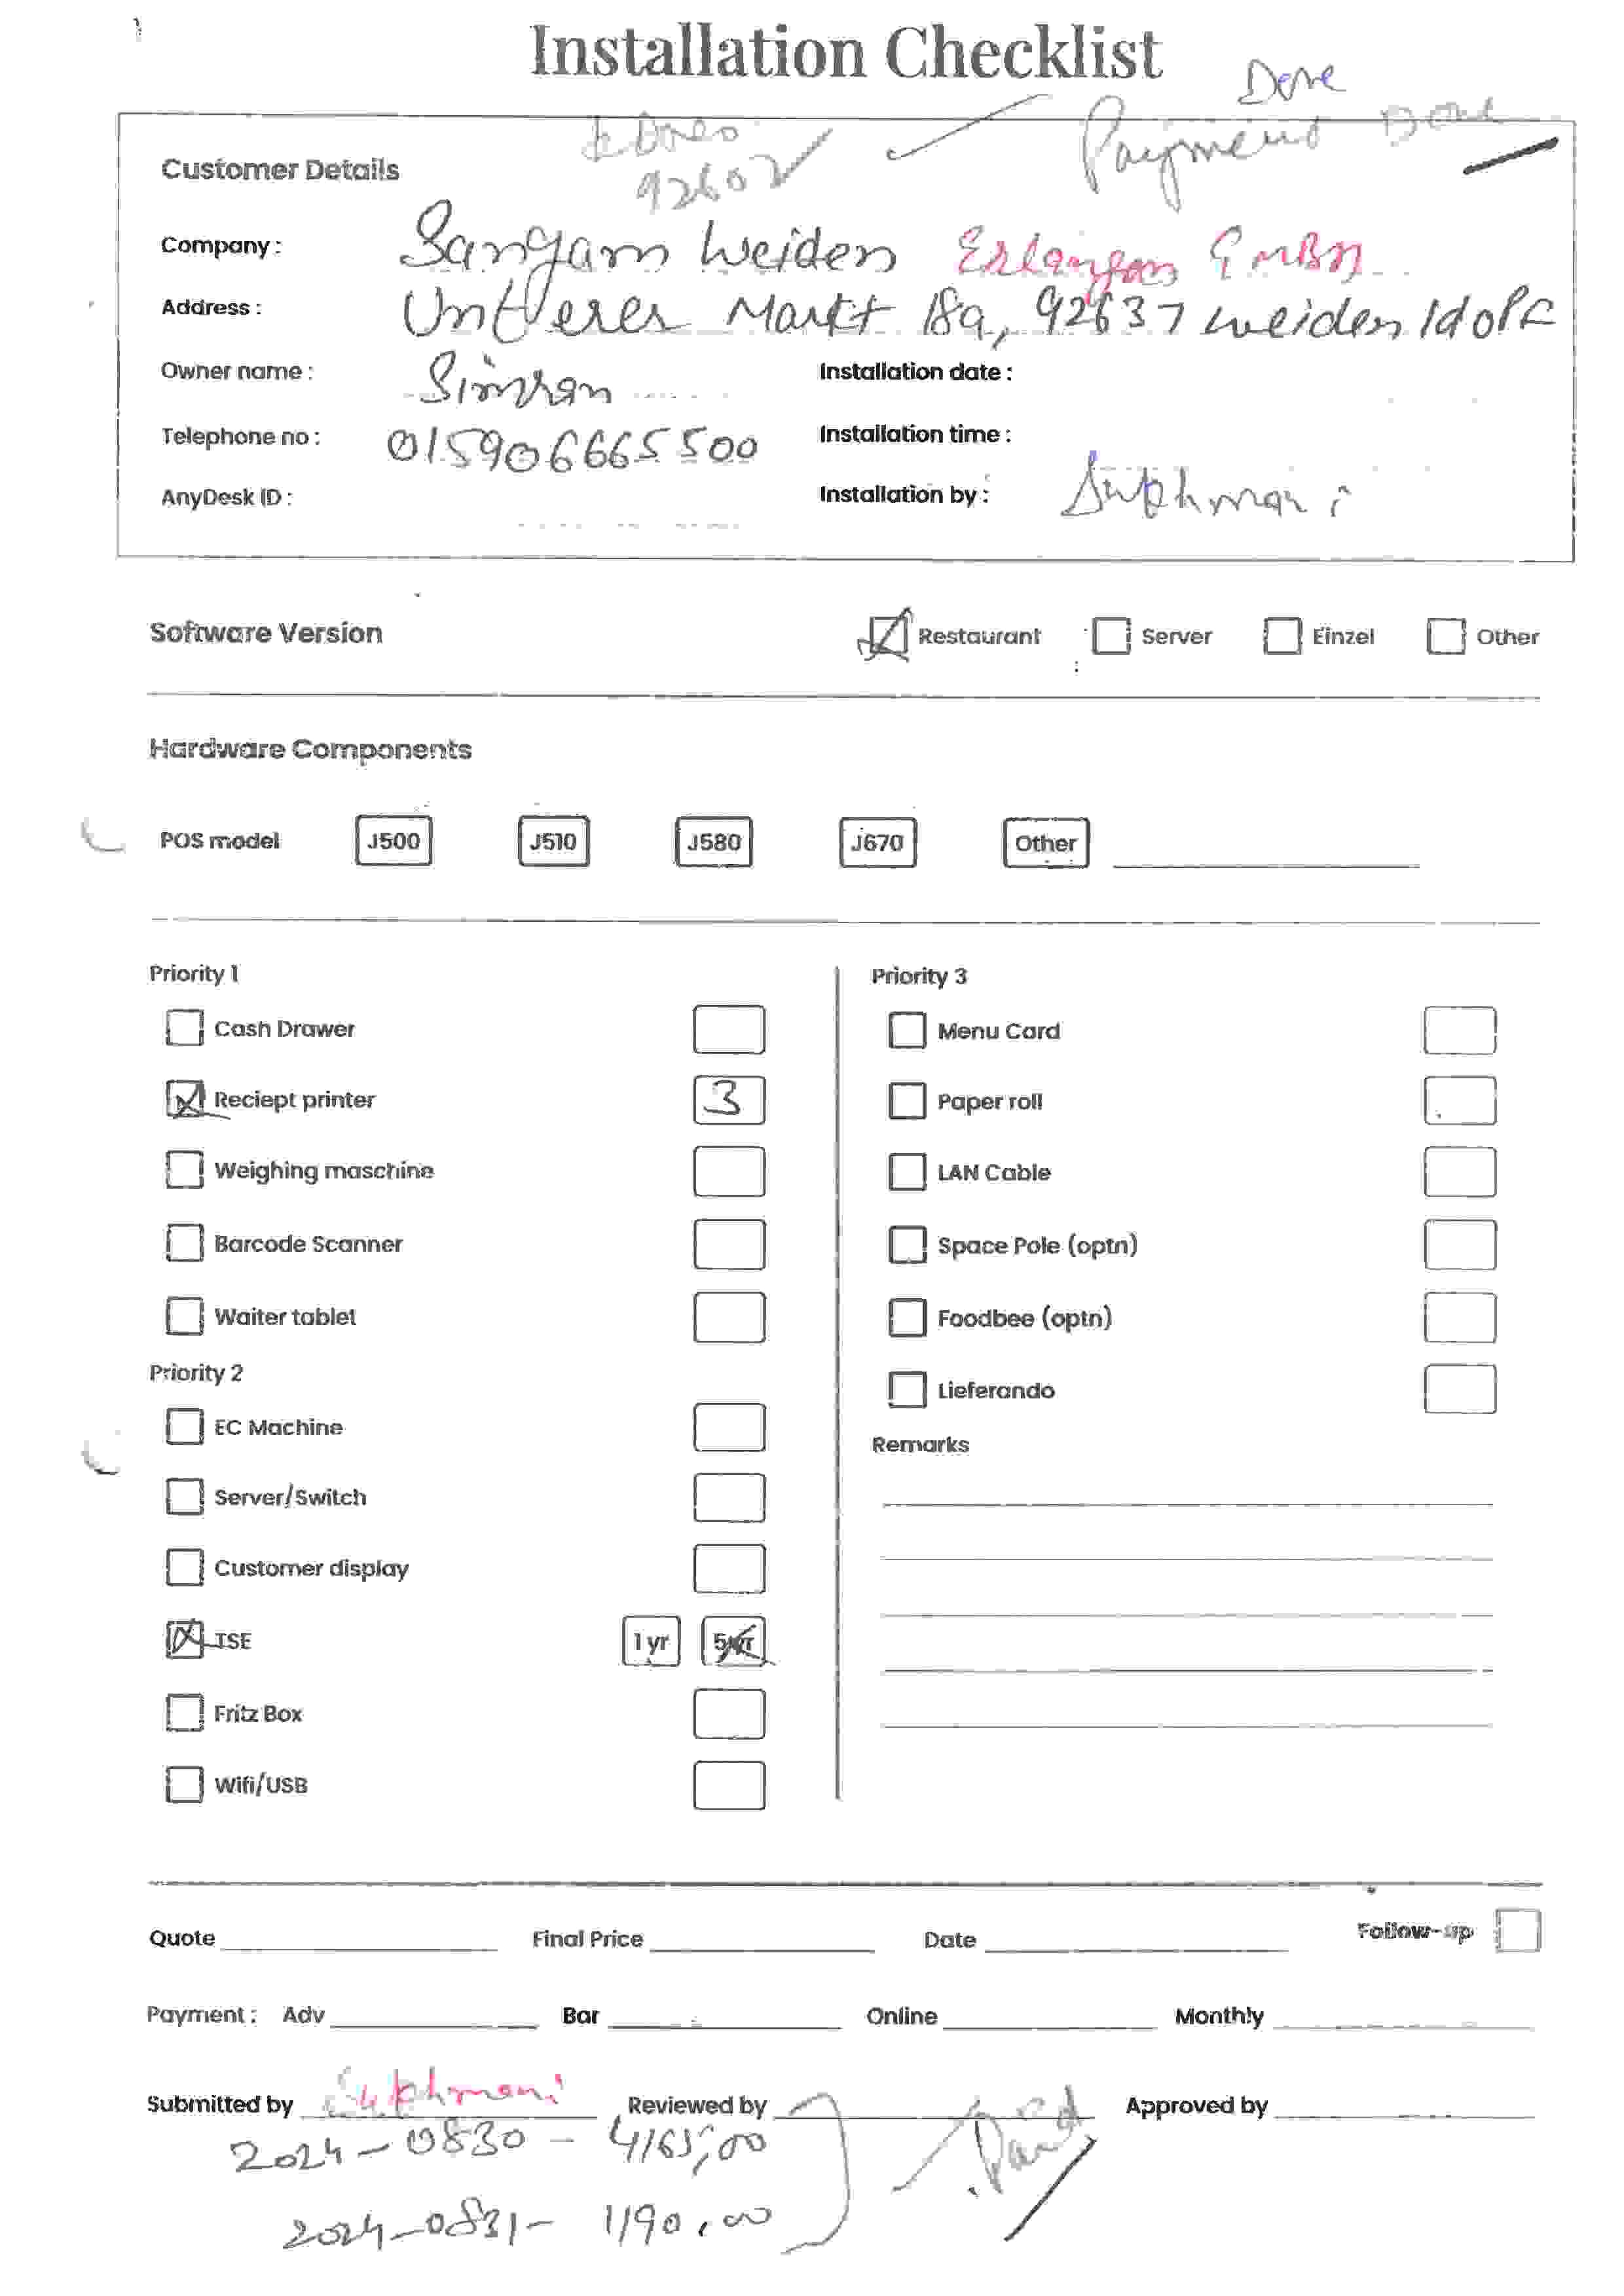 Installation Checklist
Done
Payment Done
92602
Customer Details
Company: Sangam Weiden Erlangen GmBH
Address: Unterer Markt 18a, 92637 weiden Idopf
Owner name: Simran
Installation date:
Telephone no: 015906665500
Installation time:
AnyDesk ID:
Installation by: Sukhmani
Software Version Restaurant Server Einzel Other
Hardware Components
POS model J500 J510 J580 J670 Other
Priority 1
Cash Drawer
Reciept printer 3
Weighing maschine
Barcode Scanner
Waiter tablet
Priority 2
EC Machine
Server/Switch
Customer display
TSE 1 yr 5 yr
Fritz Box
Wifi/USB
Priority 3
Menu Card
Paper roll
LAN Cable
Space Pole (optn)
Foodbee (optn)
Lieferando
Remarks
Quote Final Price Date Follow-up
Payment: Adv Bar Online Monthly
Submitted by Sukhmani Reviewed by Approved by
2024-0830 - 4165,00
2024-0831 - 1190,00
Paid